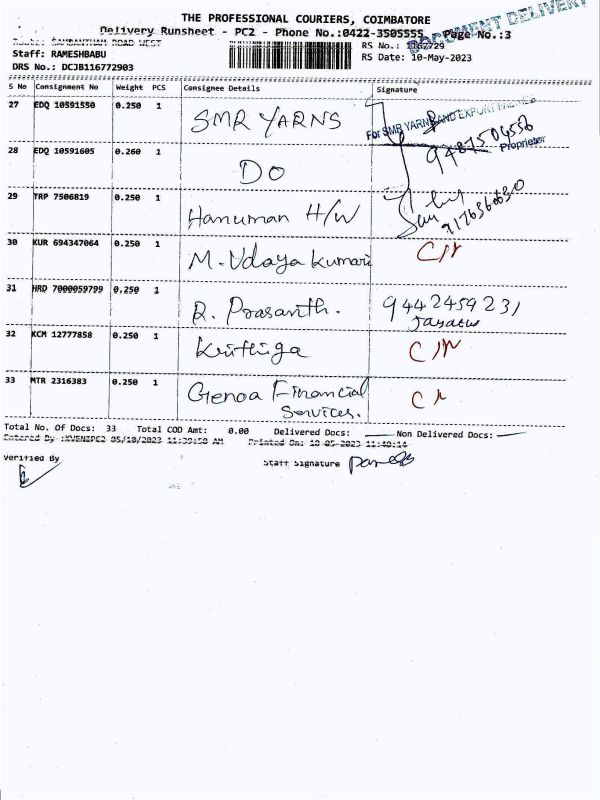 THE PROFESSIONAL COURIERS, COIMBATORE
DOCUMENT DELIVERY
Delivery Runsheet - PC2 - Phone No.:0422-3505555 Page No.:3
Route: SAMBANTHAM ROAD WEST
RS No.: 1167729
Staff: RAMESHBABU
RS Date: 10-May-2023
DRS No.: DCJB116772903
S No Consignment No Weight PCS Consignee Details Signature
27 EDQ 10591550 0.250 1 SMR YARNS
For SMR YARN AND EXPORT
Proprietor
28 EDQ 10591605 0.260 1 DO
29 TRP 7506819 0.250 1 Hanuman H/W
30 KUR 694347064 0.250 1 M. Udaya Kumari
31 HRD 7000059799 0.250 1 R. Prasanth. 9442459231
32 KCM 12777858 0.250 1 Krithiga
33 MTR 2316383 0.250 1 Genoa Financial
Services.
Total No. Of Docs: 33 Total COD Amt: 0.00 Delivered Docs: Non Delivered Docs:
Entered By :KVENIPC2 05/10/2023 11:39:50 AM Printed On: 10-05-2023 11:40:14
Verified By Staff Signature